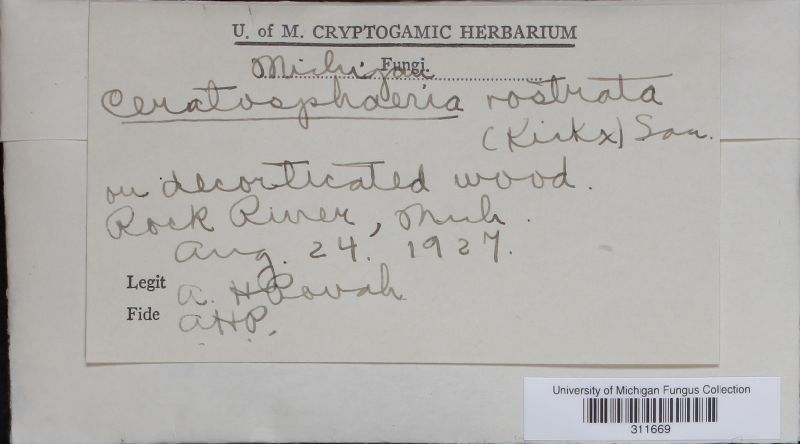 U. of M. CRYPTOGAMIC HERBARIUM
Michigan Fungi.
Ceratosphaeria rostrata
(Kickx) Sacc.
on decorticated wood.
Rock River, Mich.
Aug. 24. 1927.
Legit A. H Povah
Fide AHP.
University of Michigan Fungus Collection
311669